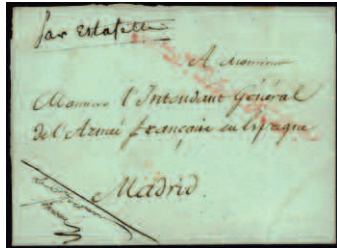 par Estafette
A Monsieur
Monsieur l'Intendant Général
de l'Armée française en Espagne
Madrid.